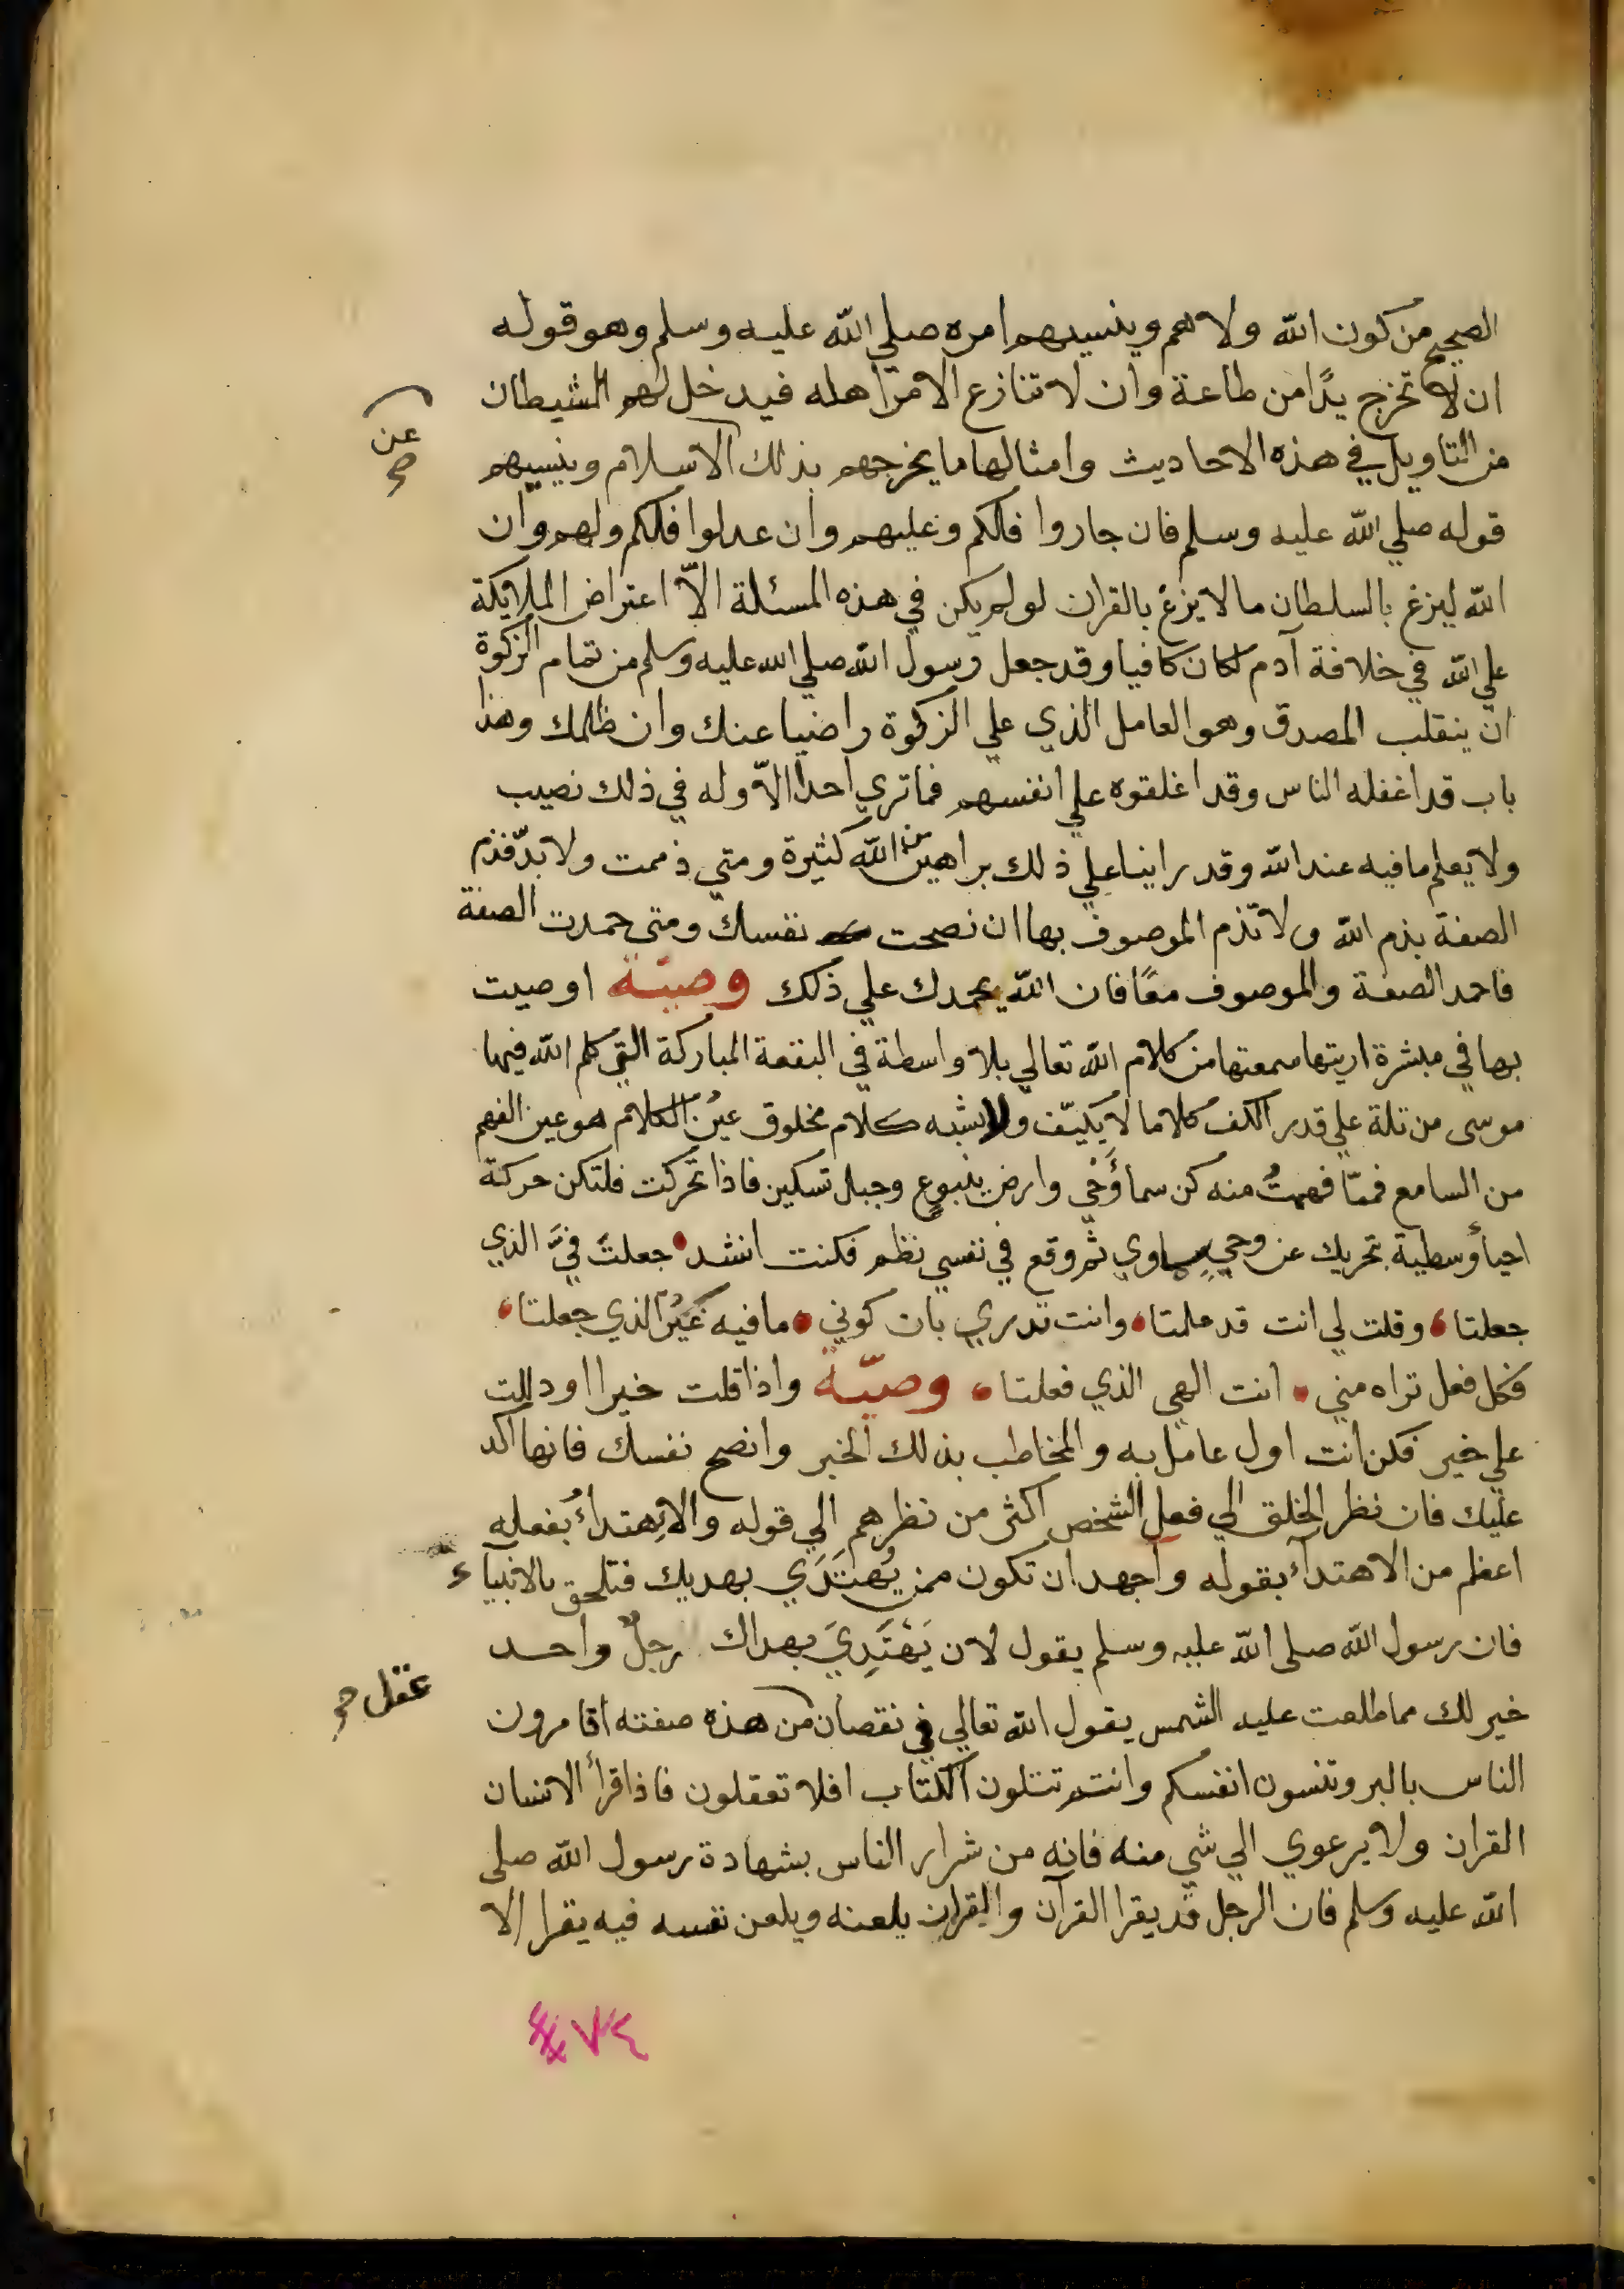 الصحيح من كون الله ولاهم وينسيهم امره صلي الله عليه وسلم وهو قوله
ان لا تخرج يدًا من طاعة وان لا تنازع الامر اهله فيدخل لهم الشيطان
من التاويل في هذه الاحاديث وامثالها ما يخرجهم بذلك الاسلام وينسيهم
عن صح
قوله صلي الله عليه وسلم فان جاروا فلكم وعليهم وان عدلوا فلكم ولهم وان
الله ليزغ بالسلطان ما لا يزغ بالقران لو لم يكن في هذه المسئلة الاّ اعتراض الملايكة
علي الله في خلافة آدم لكان كافيا وقد جعل رسول الله صلي الله عليه وسلم من تمام الزكوة
ان ينقلب المصدق وهو العامل الذي علي الزكوة راضيا عنك وان ظلمك وهذا
باب قد اغفله الناس وقد اغلقوه علي انفسهم فما تري احدا الاّ وله في ذلك نصيب
ولا يعلم ما فيه عند الله وقد راينا علي ذلك براهين من الله كثيرة ومتي ذممت ولا بدّ فذم
الصفة بذم الله ولا تذم الموصوف بها ان نصحت نفسك ومتى حمدت الصفة
فاحمد الصفة والموصوف معًا فان الله يحمدك علي ذلك وصيّة اوصيت
بها في مبشرة اريتها سمعتها من كلام الله تعالي بلا واسطة في البقعة المباركة التي كلم الله فيها
موسى من تلة علي قدر الكف كلاما لا يكيّف ولا يشبه كلام مخلوق عينُ الكلام هو عين الفهم
من السامع فممّا فهمتُ منه كن سمأ وَحْي وارض ينبوع وجبل تسكين فاذا تحركت فلتكن حركة
احيأ وسطية بتحريك عن وحيٍ سماوي ثم وقع في نفسي نظم فكنت انشد جعلتَ فيَّ الذي
جعلتا وقلت لي انت قد علمتا وانت تدري بان كوني ما فيه غيرُ الذي جعلتا
فكل فعل تراه مني انت الهي الذي فعلتا وصيّة واذا قلت خيرا او دللت
علي خير فكن انت اول عامل به والمخاطب بذلك الخير وانصح نفسك فانها اكد
عليك فان نظر الخلق الي فعل الشخص اكثر من نظرهم الي قوله والاِهتدأُ بفعله
اعظم من الاهتدأ بقوله واجهد ان تكون ممن يُهتَدَي بهديك فتلحق بالانبيآء
فان رسول الله صلى الله عليه وسلم يقول لان يَهْتَدِيَ بهداك رجلٌ واحد
خير لك مما طلعت عليه الشمس يقول الله تعالي في نقصان من هذه صفته اتامرون
عقل صح
الناس بالبر وتنسون انفسكم وانتم تتلون الكتاب افلا تعقلون فاذا قرأ الانسان
القران ولا يرعوي الي شي منه فانه من شرار الناس بشهادة رسول الله صلى
الله عليه وسلم فان الرجل قد يقرا القرآن والقران يلعنه ويلعن نفسه فيه يقرا الا